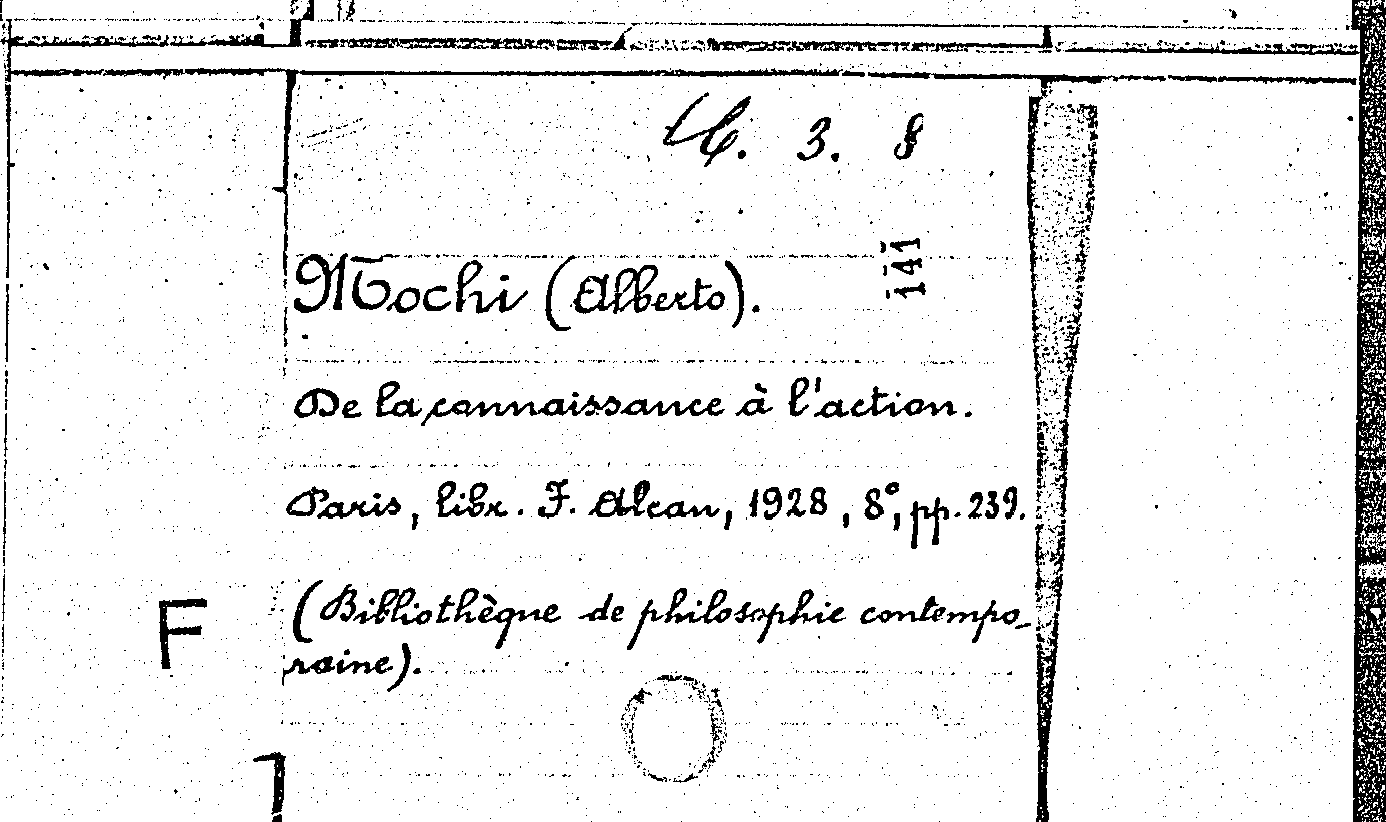 3. 8
141
Mochi (Alberto).
De la connaissance à l'action.
Paris, libr. F. Alcan, 1928, 8°, pp. 239.
F
(Bibliothèque de philosophie contempo-
raine).